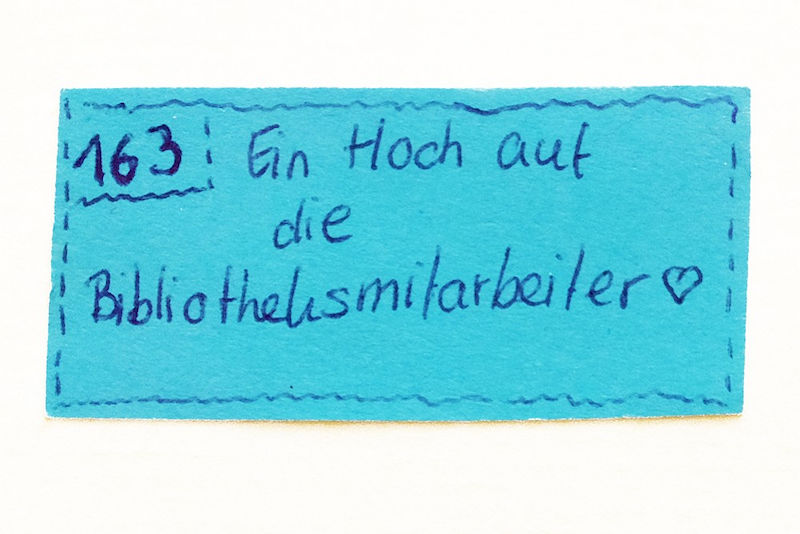 163 Ein Hoch auf
die
Bibliotheksmitarbeiter ♡